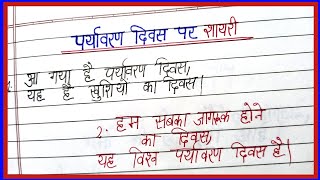 पर्यावरण दिवस पर शायरी
1. आ गया है पर्यावरण दिवस,
यह है खुशियों का दिवस।
2. हम सबका जागरूक होने
का दिवस,
यह विश्व पर्यावरण दिवस है।